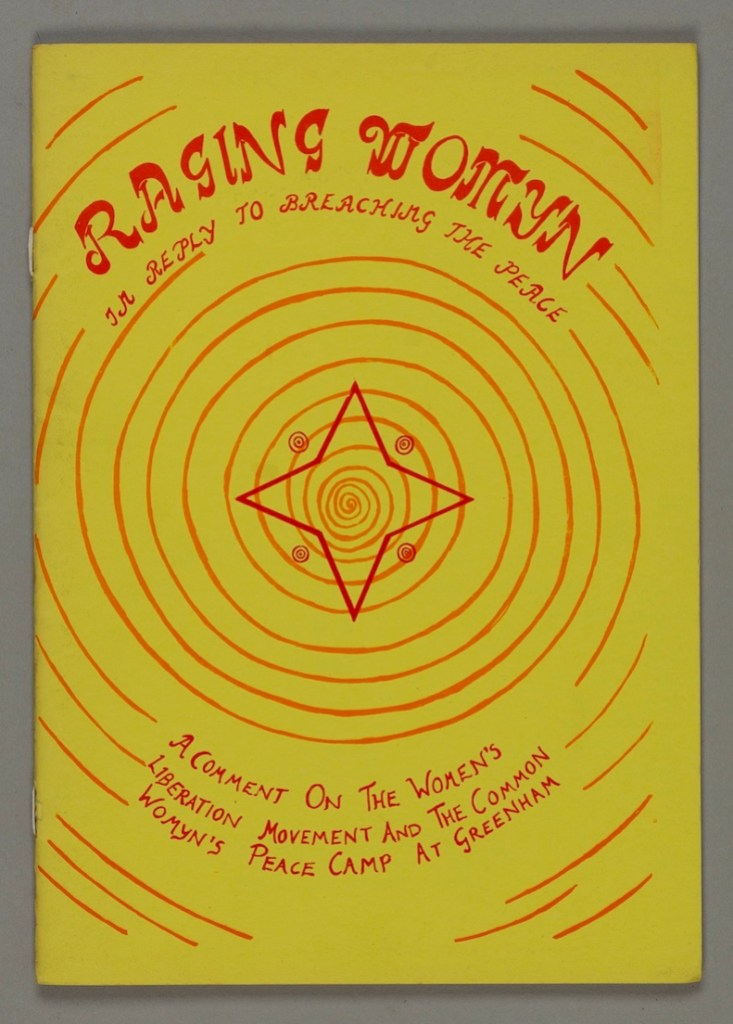 RAGING WOMYN
IN REPLY TO BREACHING THE PEACE
A COMMENT ON THE WOMEN'S
LIBERATION MOVEMENT AND THE COMMON
WOMYN'S PEACE CAMP AT GREENHAM